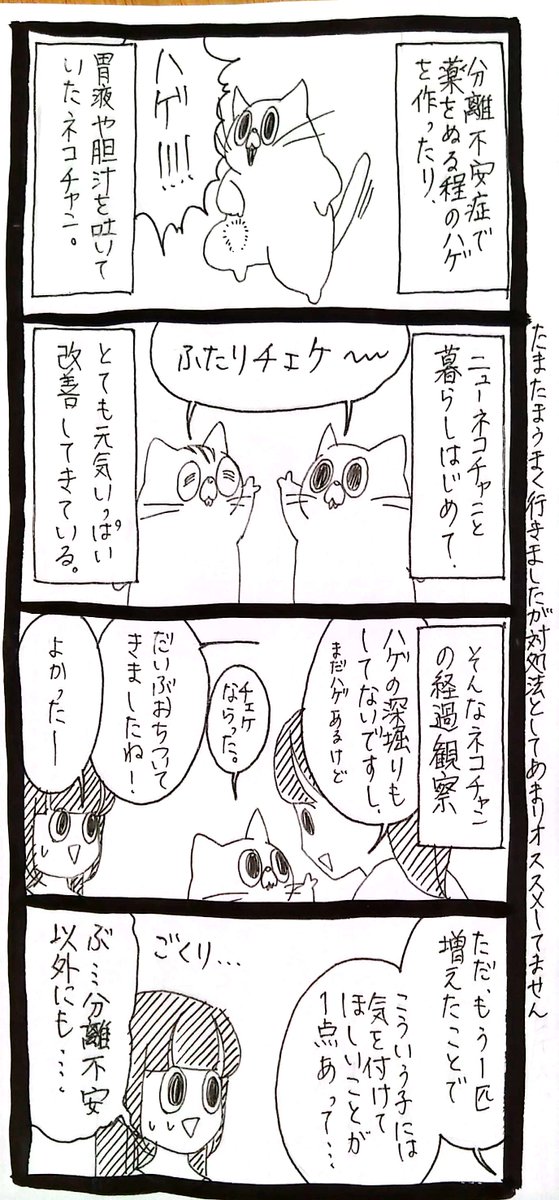 分離不安症で
薬をぬる程のハゲ
を作ったり、
ハゲ!!!!
胃液や胆汁を吐いて
いたネコチャン。
ニューネコチャンと
暮らしはじめて、
ふたりチェケ〜
とても元気いっぱい
改善してきている。
そんなネコチャン
の経過観察
ハゲの深堀りも
してないですし、
まだハゲあるけど
チェケ
ならった。
だいぶおちついて
きましたね!
よかったー
ただ、もう一匹
増えたことで
こういう子には
気を付けて
ほしいことが
1点あって…
ごくり…
ぶ…分離不安
以外にも…、
たまたまうまく行きましたが対処法としてあまりオススメしてません